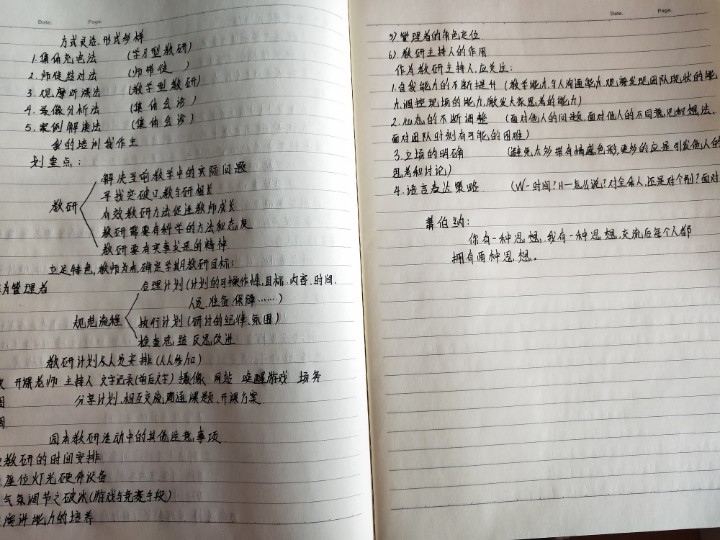 Date. Page.
方式灵活,形式多样
1.集体充电法 (学习型教研)
2.师徒结对法 (师带徒 )
3.观摩研读法 (教学型教研)
4.录像分析法 (集体会诊)
5.案例解读法 (集体会诊)
我的培训我作主
划重点:
教研
解决当前教学中的实际问题
寻找突破口,教与研相长
有效教研方法促进教师成长
教研需要有科学的方法和态度
教研要有实事求是的精神
立足特色,教师为点,确定学期教研目标:
管理者
规范流程
合理计划(计划的可操作性,目标、内容、时间、
人员、准备、保障……)
执行计划(研讨的规律、氛围)
检查总结反思改进
教研计划与人员安排(人人参与)
开课老师 主持人 文字记录(前后文字) 摄像、网站 唤醒游戏 场务
分享计划,相互交流,商量课题、开课方案
园本教研活动中的其他注意事项
教研的时间安排
座位灯光硬件设备
气氛调节之破冰(游戏与竞赛手段)
演讲能力的培养
Date. Page.
5)管理者的角色定位
6)教研主持人的作用
作为教研主持人,应关注:
1.自我能力的不断提升 (教学能力,与人沟通能力,观察发现团队现状的能
力,调控现场的能力,激发大家思考的能力)
2.心态的不断调整 (面对他人的问题,面对他人的不同意见和想法,
面对团队时刻有可能的困难)
3.立场的明确 (避免太多带有情感色彩,更多的应是引发他人的
思考和讨论)
4.语言表达策略 (W-时间?H-怎么说?对全体人,还是对个别?面对
萧伯纳:
你有一种思想,我有一种思想,交流后每个人都
拥有两种思想。